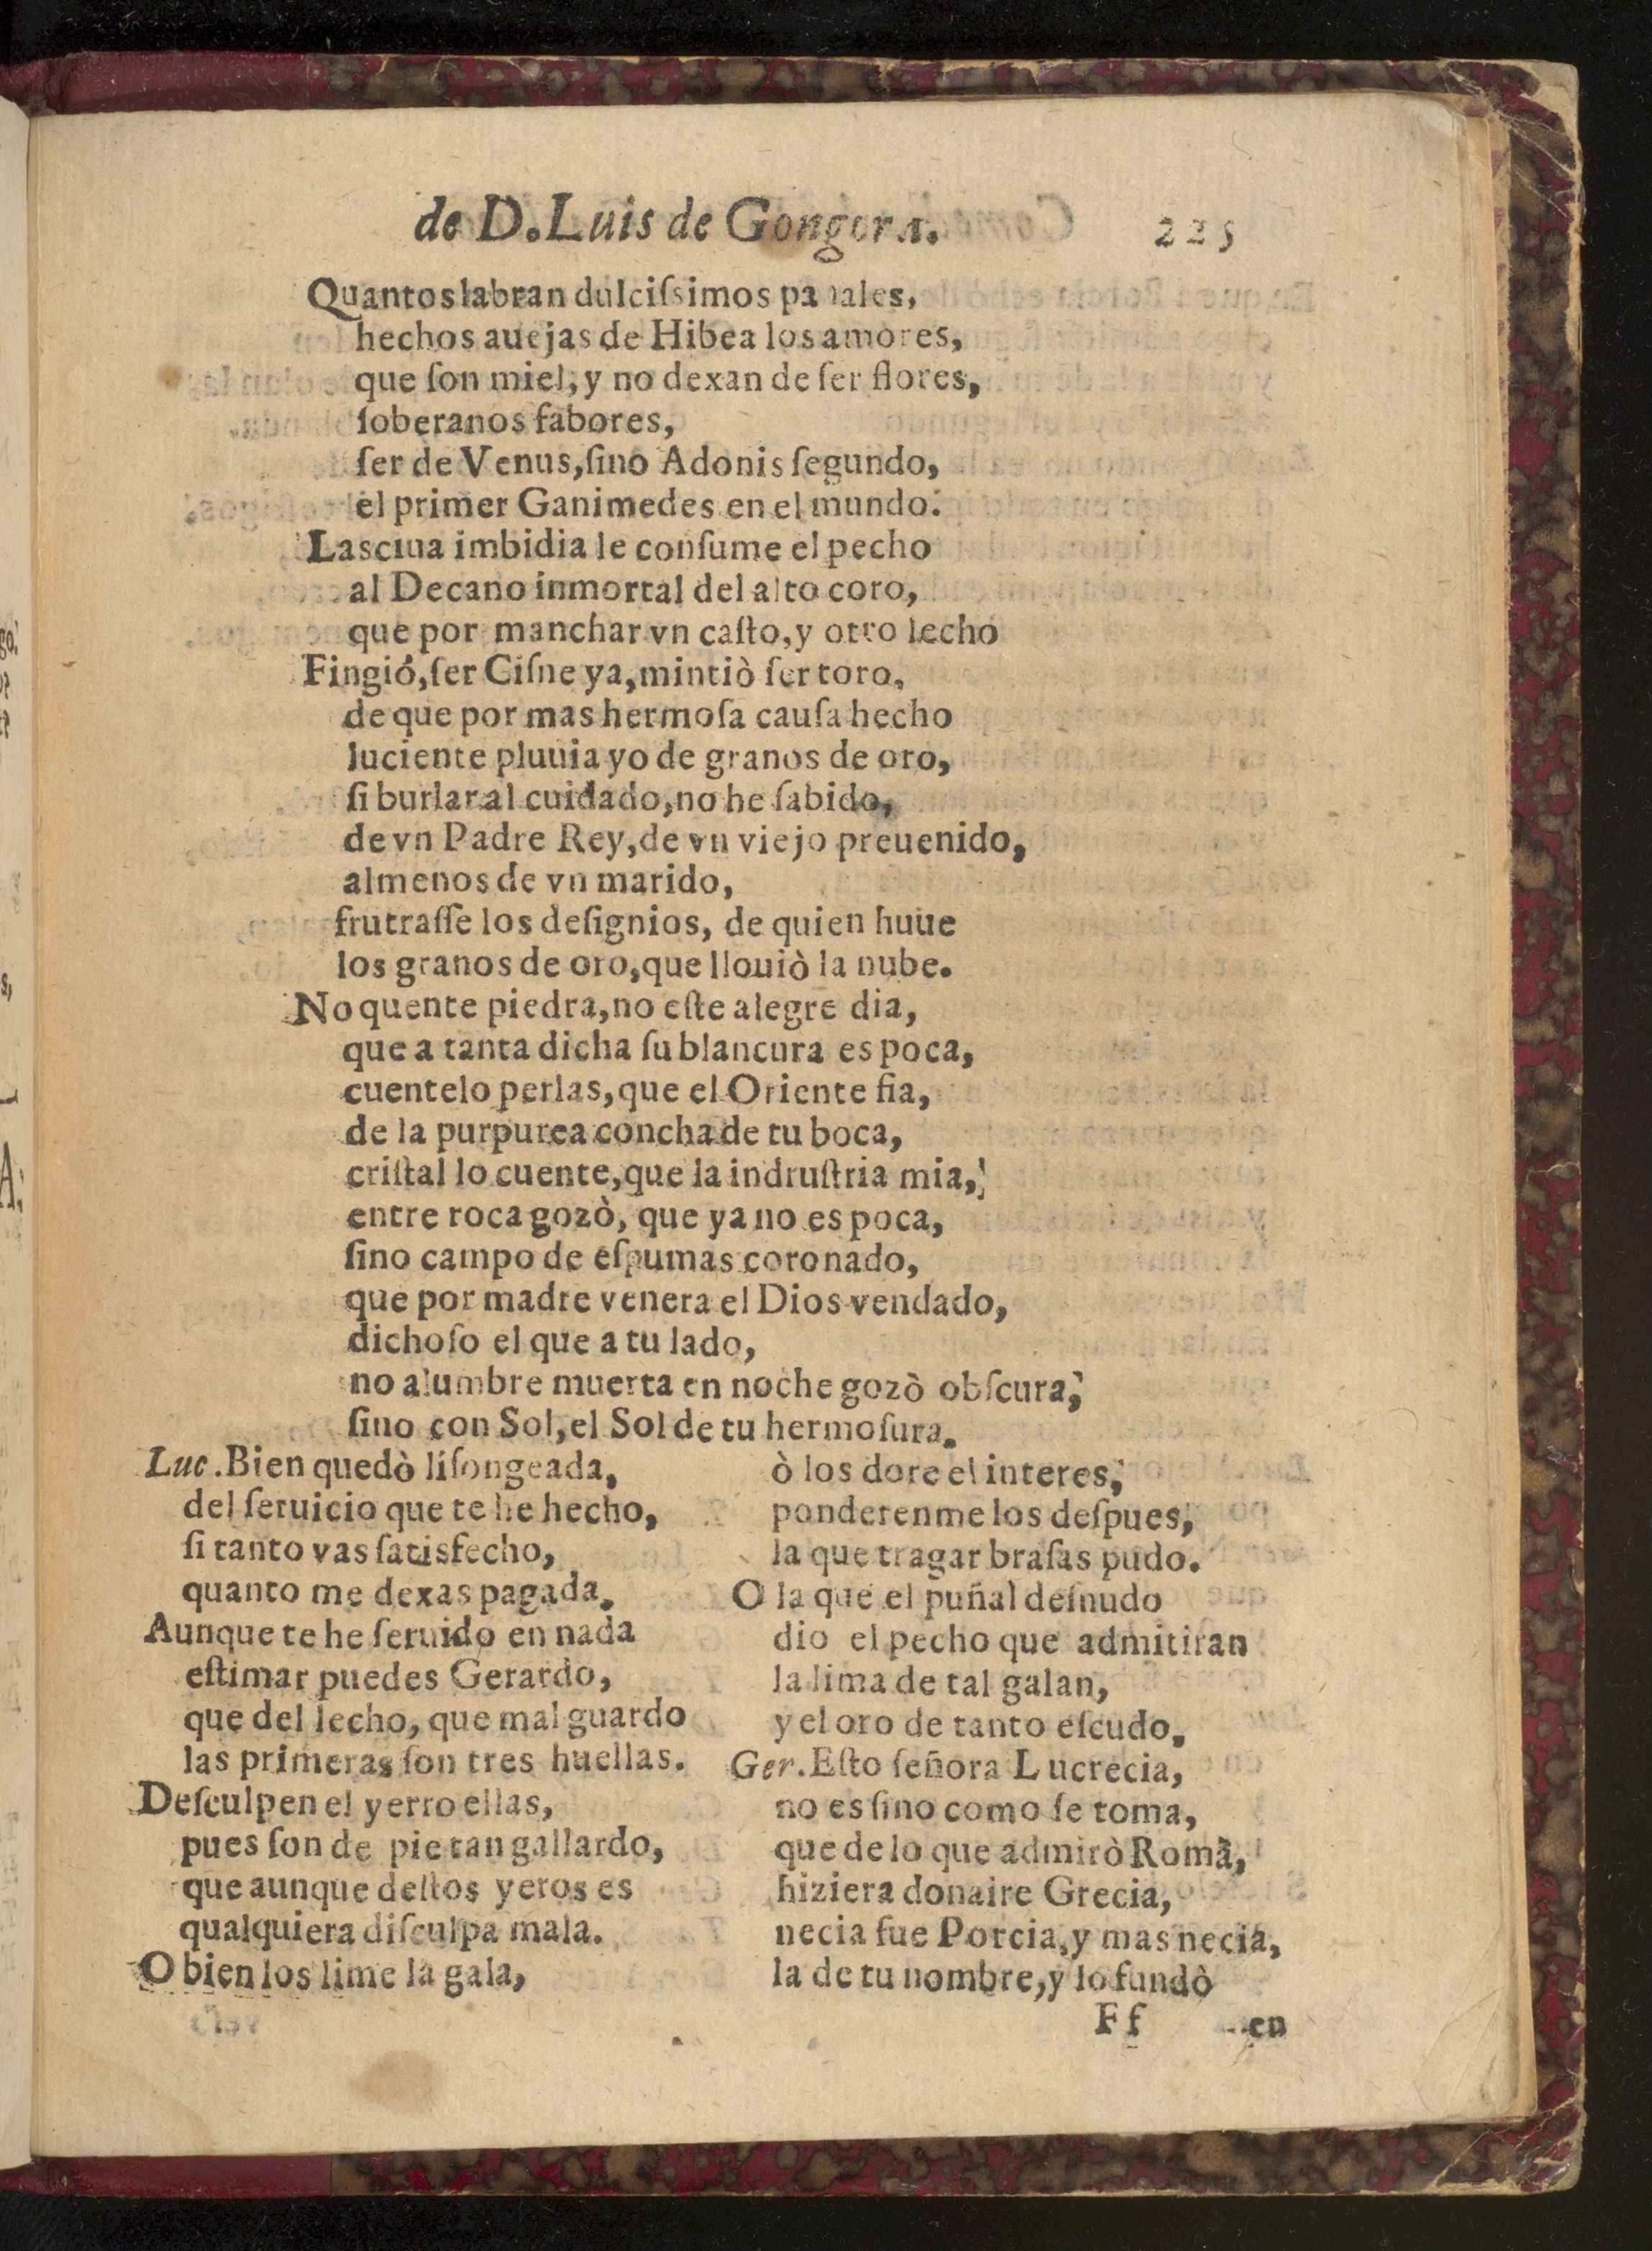 de D. Luis de Gongora. 225
Quantos labran dulciſsimos panales,
hechos auejas de Hibea los amores,
que ſon miel, y no dexan de ſer flores,
ſoberanos fabores,
ſer de Venus, ſino Adonis ſegundo,
el primer Ganimedes en el mundo.
Lasciua imbidia le conſume el pecho
al Decano inmortal del alto coro,
que por manchar vn caſto, y otro lecho
Fingió, ſer Ciſne ya, mintiò ſer toro,
de que por mas hermoſa cauſa hecho
luciente pluuia yo de granos de oro,
ſi burlar al cuidado, no he ſabido,
de vn Padre Rey, de vn viejo preuenido,
almenos de vn marido,
frutraſſe los deſignios, de quien huue
los granos de oro, que llouiò la nube.
No quente piedra, no eſte alegre dia,
que a tanta dicha ſu blancura es poca,
cuentelo perlas, que el Oriente fia,
de la purpurea concha de tu boca,
criſtal lo cuente, que la indruſtria mia,
entre roca gozò, que ya no es poca,
ſino campo de eſpumas coronado,
que por madre venera el Dios vendado,
dichoſo el que a tu lado,
no alumbre muerta en noche gozò obſcura,
ſino con Sol, el Sol de tu hermoſura.
Luc. Bien quedò liſongeada,
del ſeruicio que te he hecho,
ſi tanto vas ſatisfecho,
quanto me dexas pagada.
Aunque te he ſeruido en nada
eſtimar puedes Gerardo,
que del lecho, que mal guardo
las primeras ſon tres huellas.
Deſculpen el yerro ellas,
pues ſon de pie tan gallardo,
que aunque deſtos yeros es
qualquiera diſculpa mala.
O bien los lime la gala,
ò los dore el interes,
ponderenme los deſpues,
la que tragar braſas pudo.
O la que el puñal deſnudo
dio el pecho que admitiran
la lima de tal galan,
y el oro de tanto eſcudo.
Ger. Eſto ſeñora Lucrecia,
no es ſino como ſe toma,
que de lo que admirò Roma,
hiziera donaire Grecia,
necia fue Porcia, y mas necia,
la de tu nombre, y lo fundò
Ff en